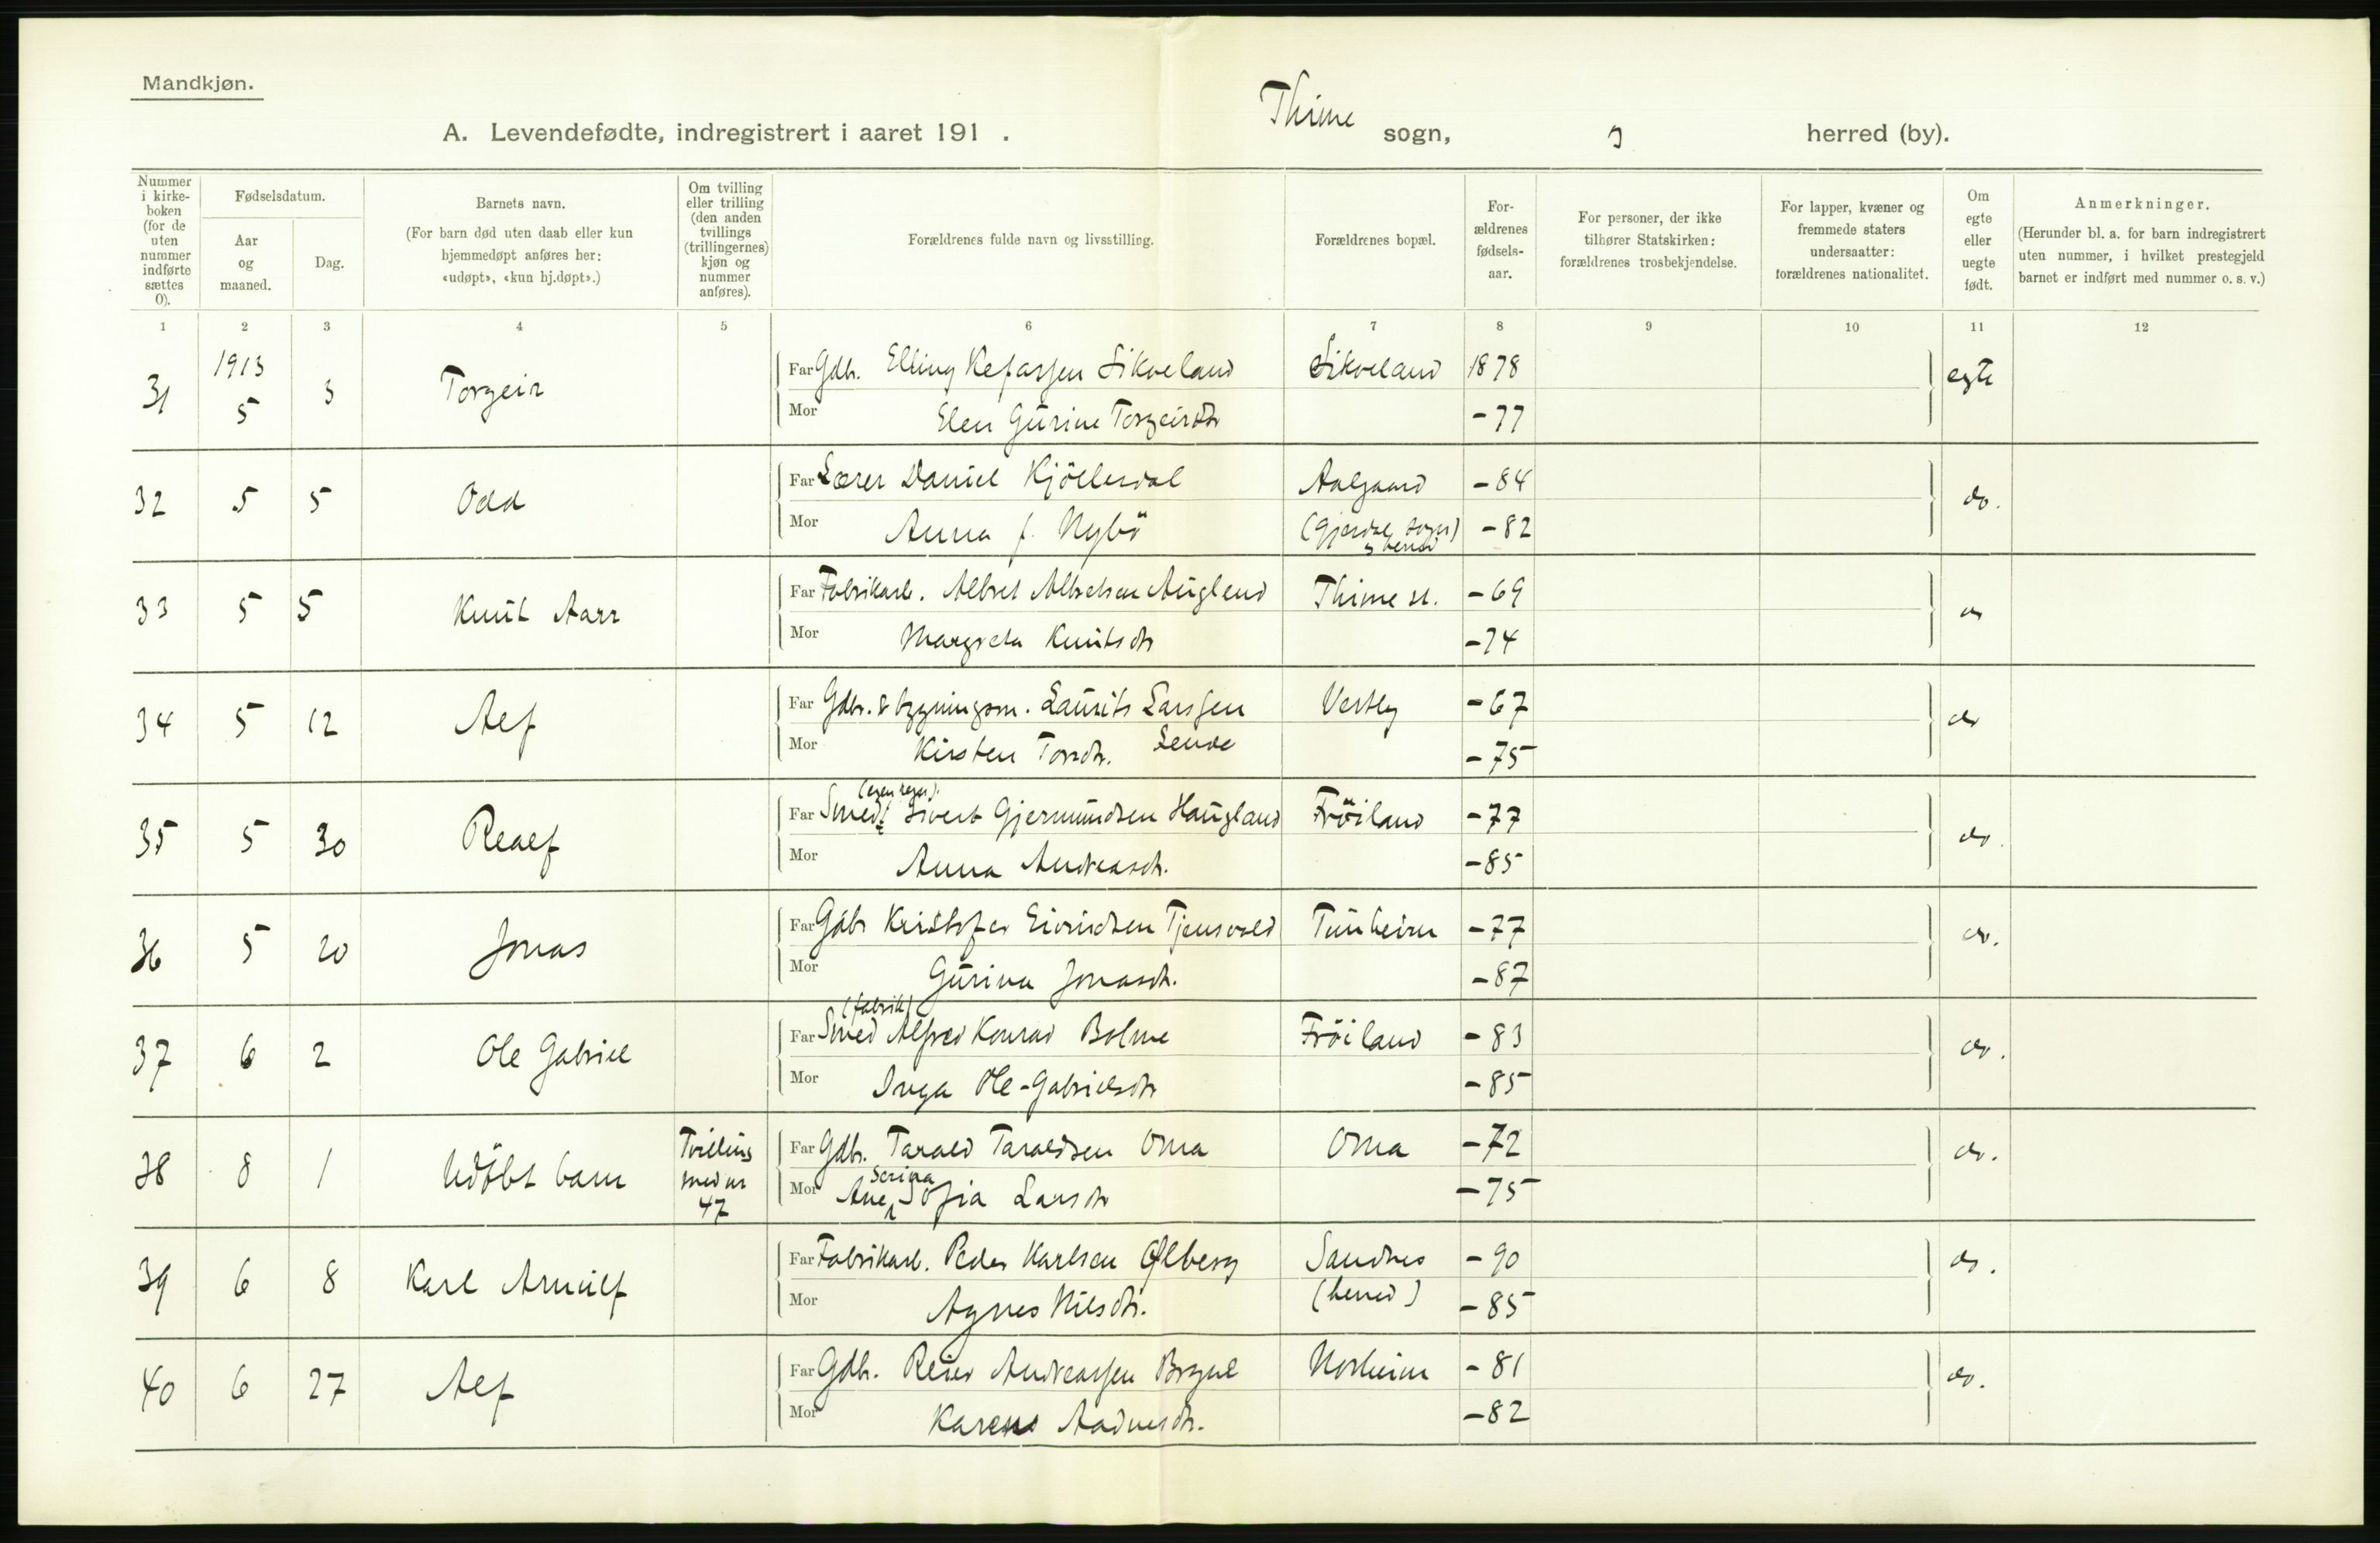 Mandkjøn.
A. Levendefødte, indregistrert i aaret 191 . Thime sogn, herred (by).
Nummer i kirke-boken (for de uten nummer indførte sættes 0).
Fødselsdatum.
Aar og maaned.
Dag.
Barnets navn.
(For barn død uten daab eller kun hjemmedøpt anføres her: «udøpt», «kun hj.døpt».)
Om tvilling eller trilling (den anden tvillings (trillingernes) kjøn og nummer anføres).
Forældrenes fulde navn og livsstilling.
Forældrenes bopæl.
For-ældrenes fødsels-aar.
For personer, der ikke tilhører Statskirken: forældrenes trosbekjendelse.
For lapper, kvæner og fremmede staters undersaatter: forældrenes nationalitet.
Om egte eller uegte født.
Anmerkninger.
(Herunder bl. a. for barn indregistrert uten nummer, i hvilket prestegjeld barnet er indført med nummer o. s. v.)
1 2 3 4 5 6 7 8 9 10 11 12
31 1913 5 3 Torgeir Far Gdb. Elling Kefassen Sikveland Sikveland 1878 egte
Mor Elen Gurine Torgeirsdtr -77
32 5 5 Odd Far Lærer Daniel Kjöllesdal Aalgaard -84 do.
Mor Anna f. Nybö (Gjesdal sogn) -82
& herred
33 5 5 Knut Aarr Far Fabrikarb. Albret Albretsen Auglend Thime st. -69 do
Mor Margreta Knutsdtr -74
34 5 12 Alf Far Gdbr. & bygningsm. Laurits Larssen Vestly -67 do
Mor Kirsten Torsdtr. Lende -75
35 5 30 Realf Far Smed Sivert Gjermundsen Haugland Fröiland -77 do.
Mor Anna Andreasdtr. -85
36 5 20 Jonas Far Gdbr Kristofer Eivindsen Tjensvold Tunheim -77 do.
Mor Gurina Jonasdtr. -87
37 6 2 Ole Gabriel (fabrik) Far Smed Alfred Konrad Bolme Fröiland -83 do.
Mor Inga Ole-Gabrielsdtr -85
38 8 1 Udöbt barn Tvilling med nr 47 Far Gdbr. Tarald Taraldsen Oma Oma -72 do.
Mor Ane Serina Sofia Larsdtr -75
39 6 8 Karl Arnulf Far Fabrikarb. Peder Karlsen Ølberg Sandnes -90 do.
Mor Agnes Nilsdtr. (herred) -85
40 6 27 Alf Far Gdb. Reier Andreassen Bryne Norheim -81 do.
Mor Karene Aadnesdtr. -82